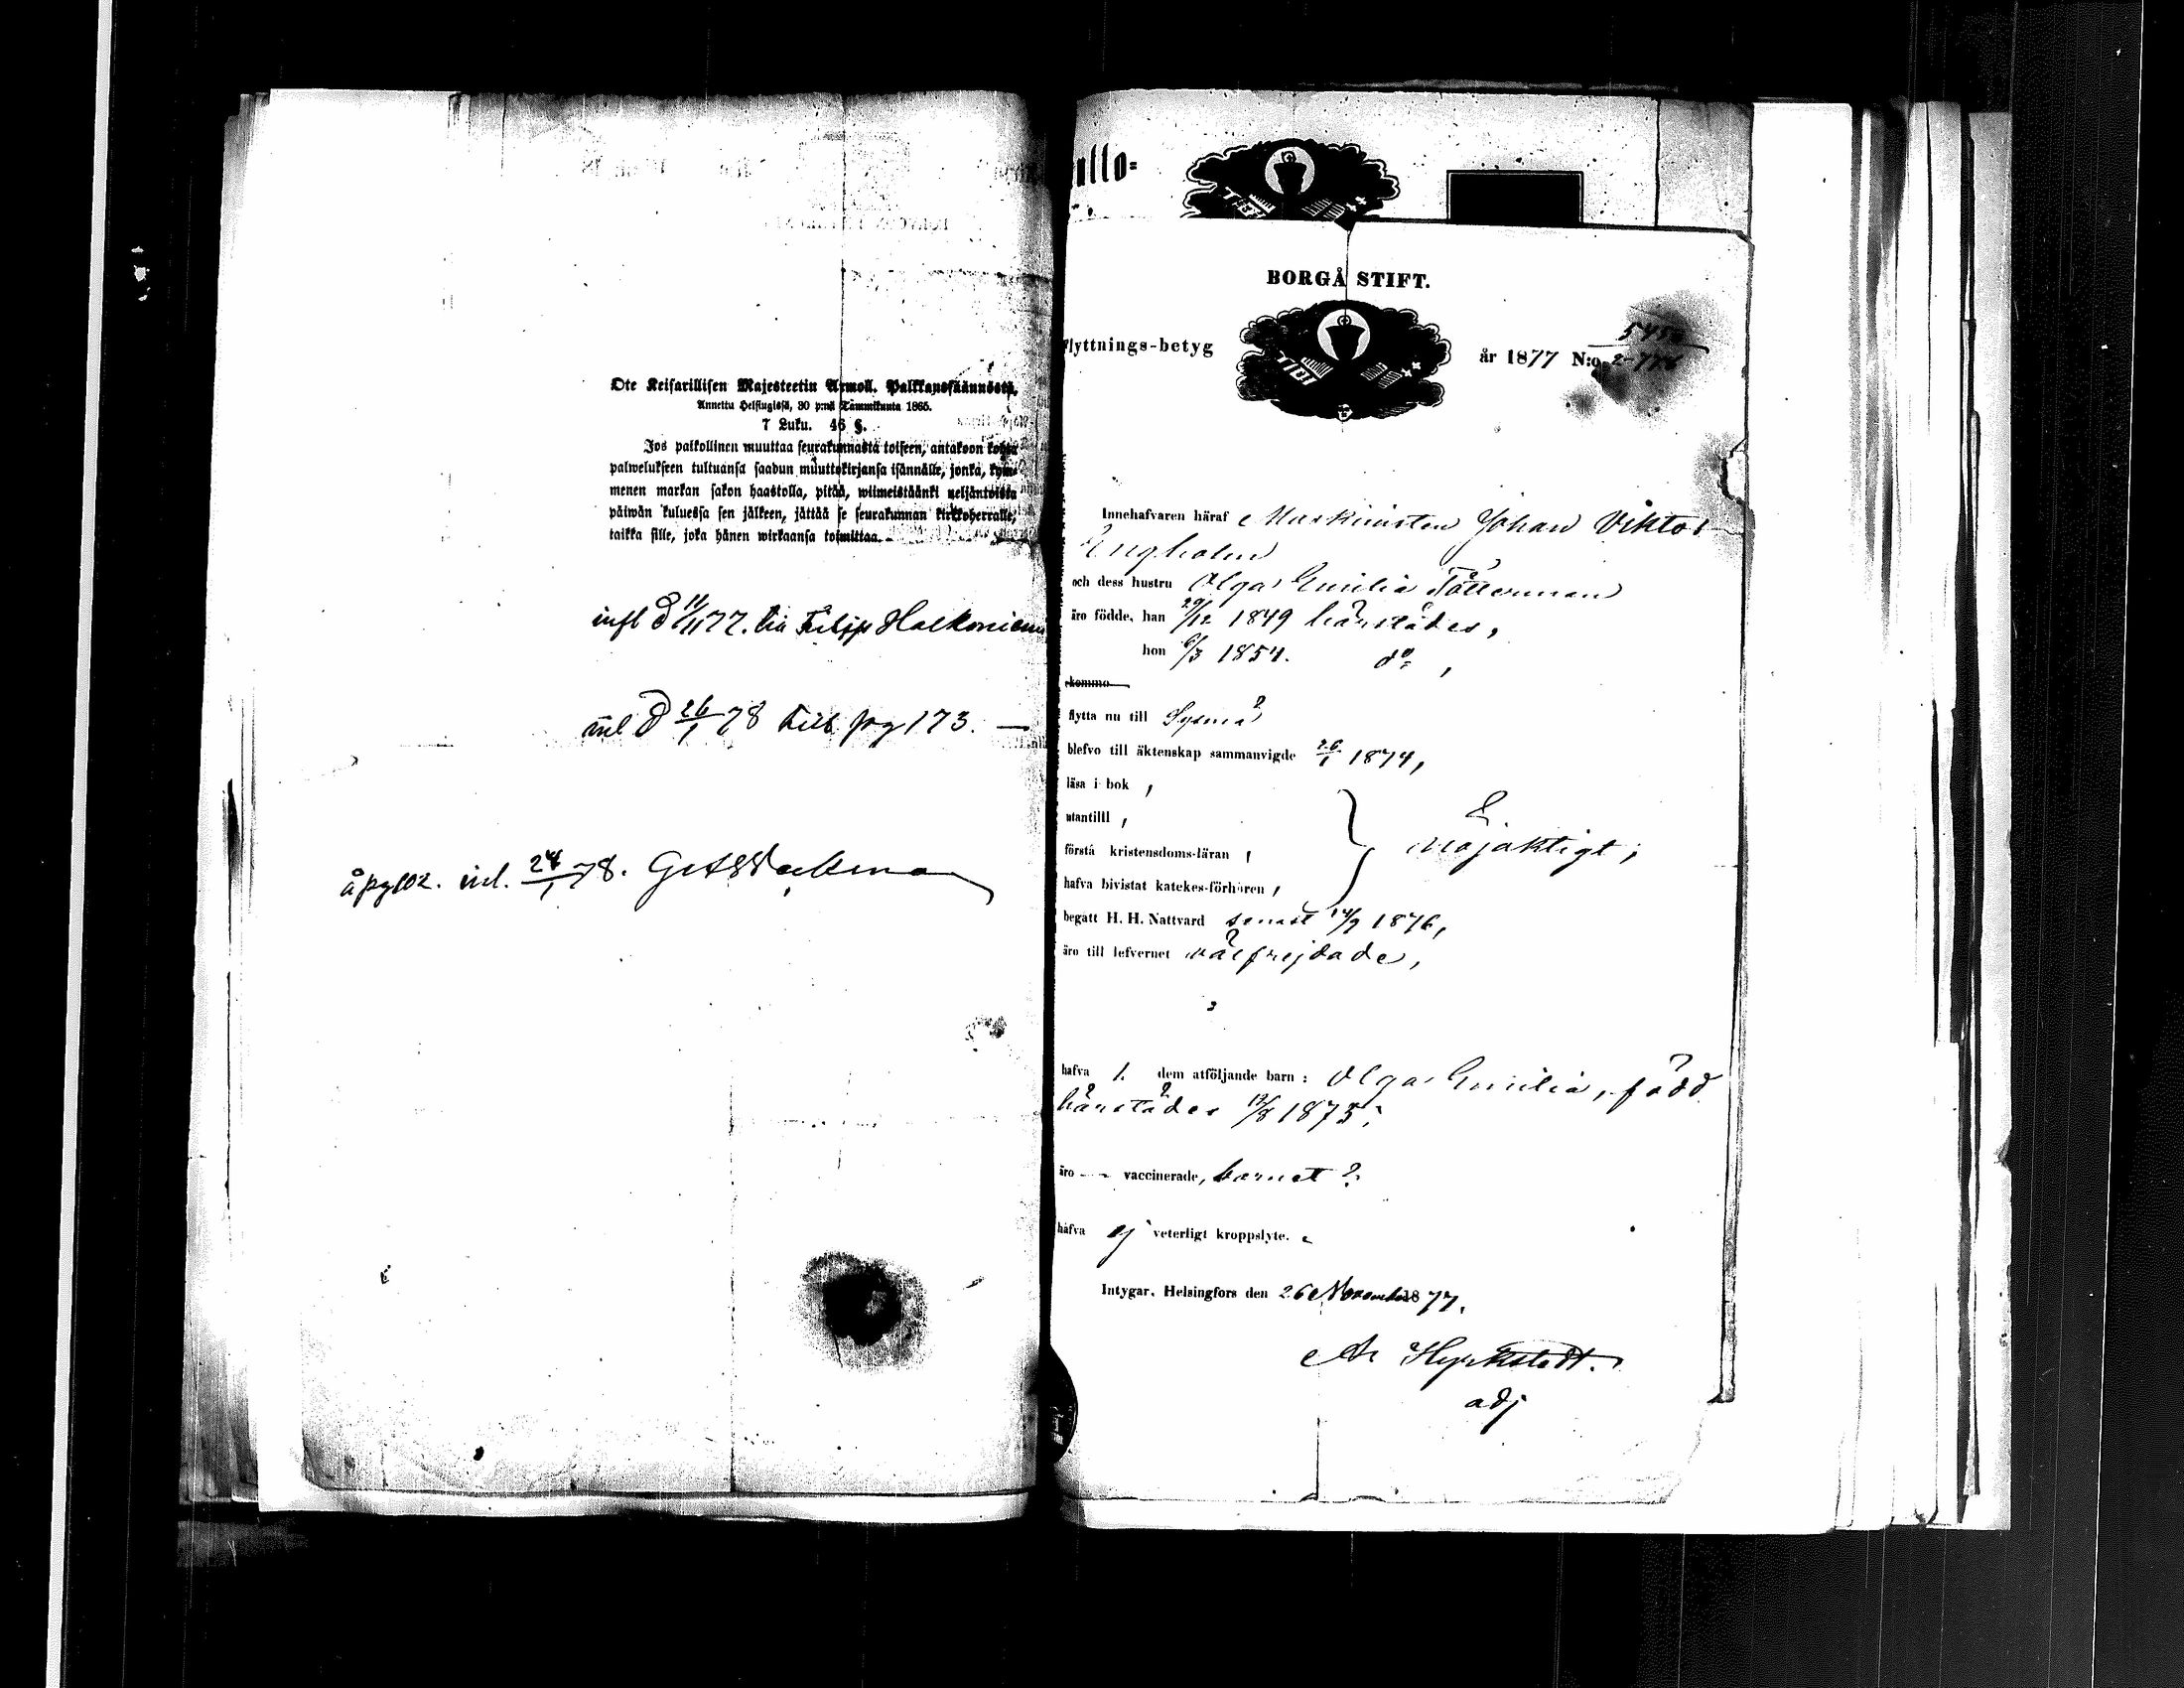 Ote Keisarillisen Majesteetin Armoll. Palkkaussäännöstä,
Annettu Helsingissä, 30 p:nä Tammikuuta 1865.
7 Luku. 46 §.
Jos palkollinen muuttaa seurakunnasta toiseen, antakoon kohta
palwelukseen tultuansa saadun muuttokirjansa isännälle, jonka, kym-
menen markan sakon haastolla, pitää, wiimeistäänki neljäntoista
päiwän kuluessa sen jälkeen, jättää se seurakunnan kirkkoherralle,
taikka sille, joka hänen wirkaansa toimittaa.
infl d 11/11 77. Filip
d 26/1 78 pg 173. —
å pg 102. inl. 24/1 78.
BORGÅ STIFT.
Flyttnings-betyg
år 1877 N:o
Innehafvaren häraf Maskinisten Johan Viktor
Engholm
och dess hustru Olga Emilia Tötterman
äro födde, han 29/12 1849 härstädes,
hon 6/3 1854. do,
komme
flytta nu till Sysmä
blefvo till äktenskap sammanvigde 26/1 1874,
läsa i bok ,
utantilll ,
förstå kristensdoms-läran ,
hafva bivistat katekes-förhören ,
nöjaktigt;
begått H. H. Nattvard senast 14/9 1876,
äro till lefvernet välfrejdade,
hafva 1. dem åtföljande barn: Olga Emilia, född
härstädes 13/8 1875;
äro - - vaccinerade, barnet ?
hafva ej veterligt kroppslyte.
Intygar, Helsingfors den 26 November 1877.
adj